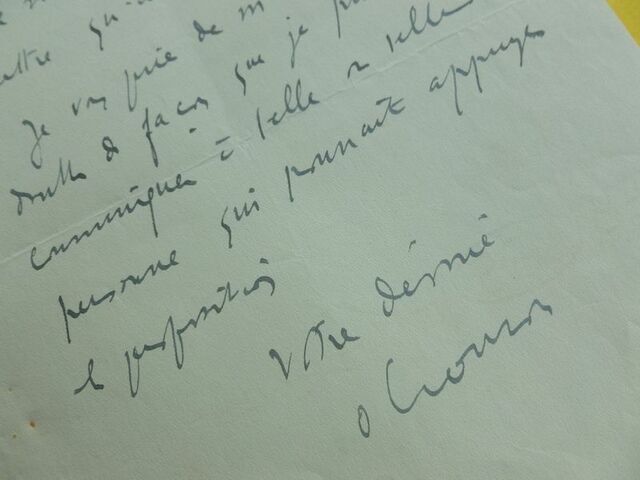 Je vous prie de m
de façon que je
communiquer à telle ou telle
personne qui pourrait appuyer
la proposition
Votre dévoué